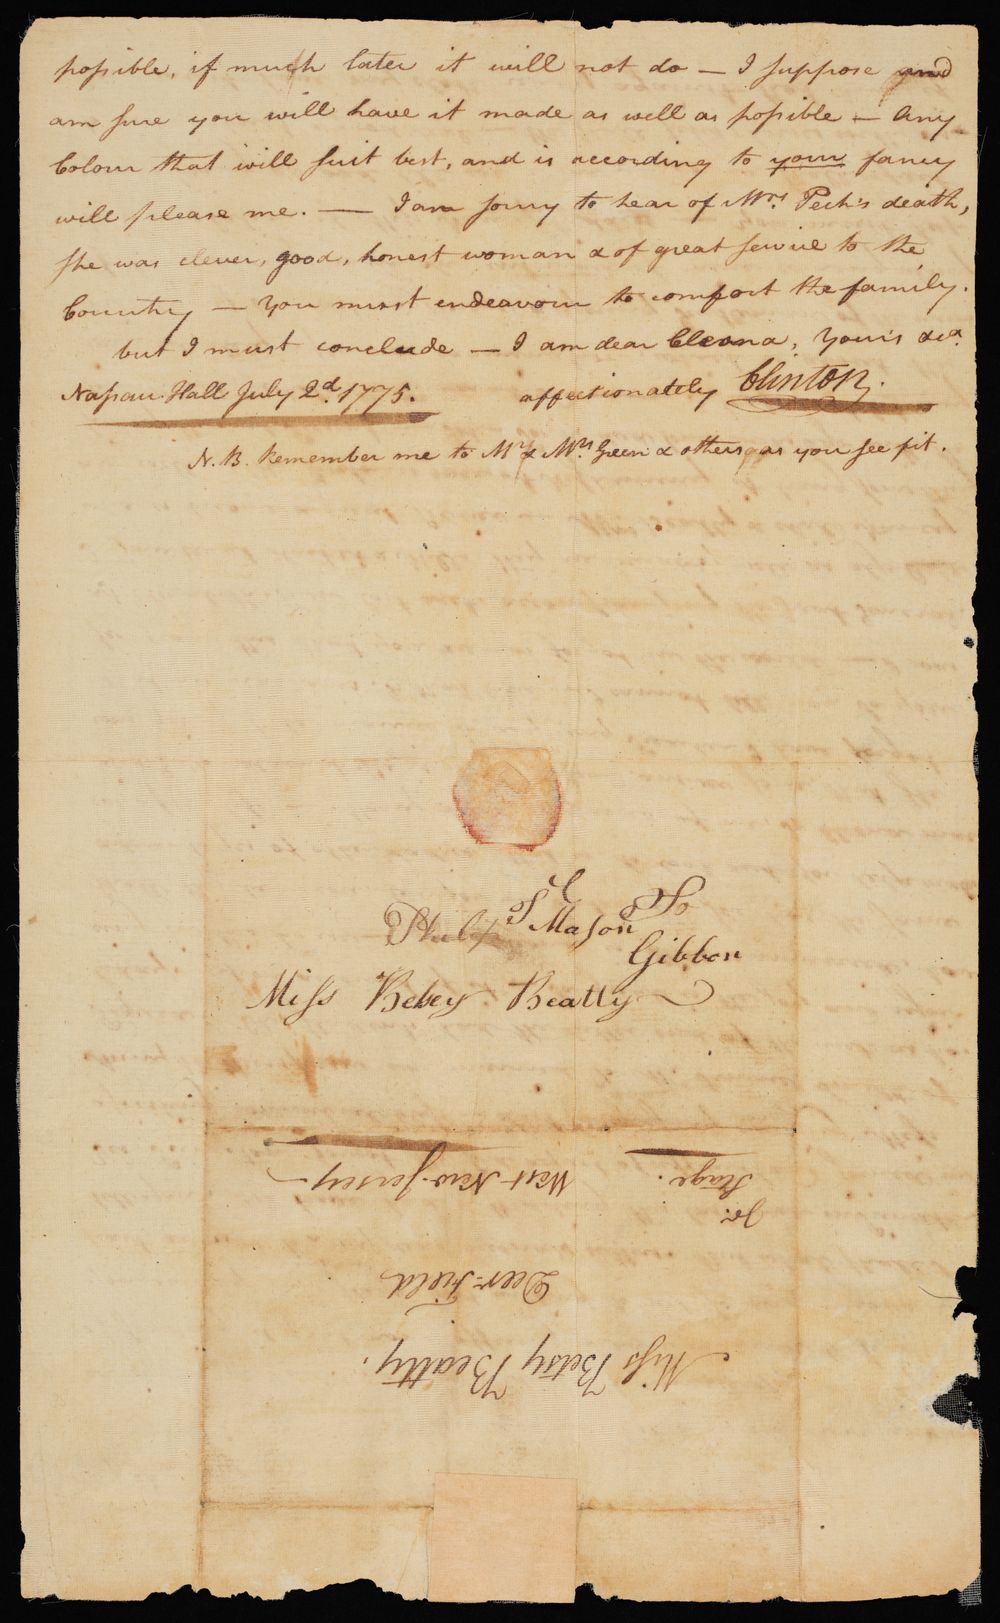 possible, if much later it will not do — I suppose and
am sure you will have it made as well as possible — Any
Colour that will suit best, and is according to your fancy
will please me. — I am sorry to hear of Mrs. Peck's death,
she was clever, good, honest woman & of great service to the
Country — You must endeavour to comfort the family.
but I must conclude — I am dear Cleona, Your's &c.
Nassau-Hall July 2d. 1775. affectionately Clinton.
N.B. Remember me to Mr. & Mrs. Green & others, as you see fit.
Mason
Gibbon
Miss Bebey Beatty
West New-Jersey Stage.
Deer-Field
Miss Betsy Beatty.